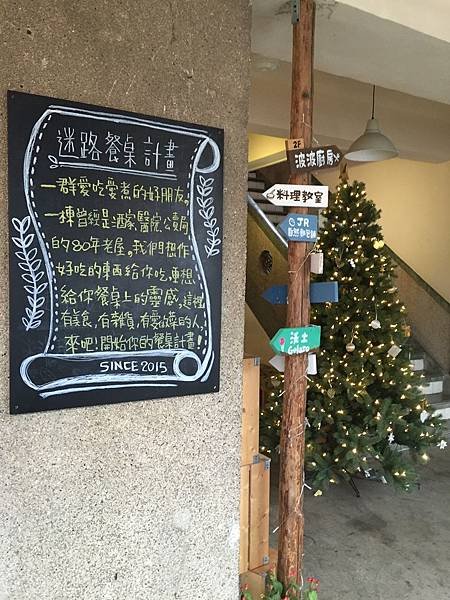 迷路餐桌計畫
一群愛吃愛煮的好朋友。
一棟曾經是酒家.醫院.公賣局
的80年老屋。我們想作
好吃的東西給你吃,更想
給你餐桌上的靈感,這裡
有美食,有雜貨,有愛做菜的人,
來吧!開始你的餐桌計畫!
SINCE 2015
2F
波波廚房
料理教室
JR
沃土
Gelato